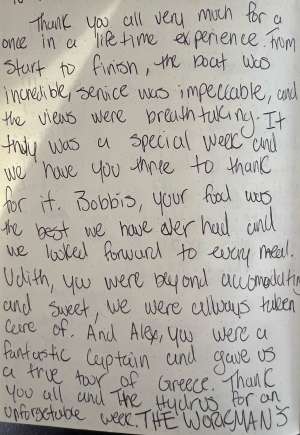 Thank you all very much for a
once in a lifetime experience. From
start to finish, the boat was
incredible, service was impeccable, and
the views were breathtaking. It
truly was a special week and
we have you three to thank
for it. Bobbis, your food was
the best we have ever had and
we looked forward to every meal.
Udith, you were beyond accomodating
and sweet, we were allways taken
care of. And Alex, you were a
fantastic Captain and gave us
a true tour of Greece. Thank
you all and The Hydrus for an
unforgetable week. THE WORKMANS